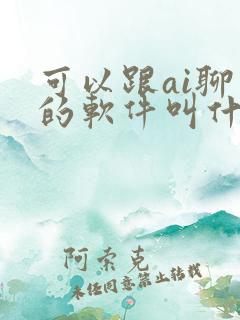 可以跟ai聊
的軟件叫什
阿索克
未经同意禁止转载